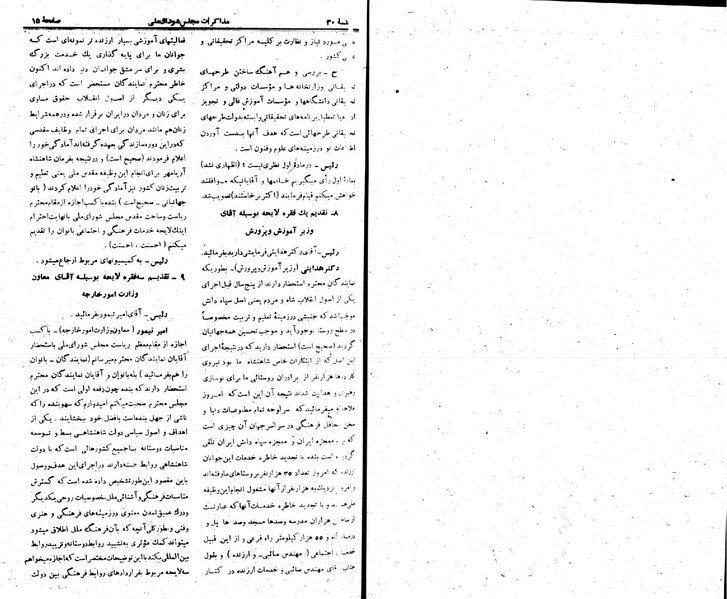 جلسهٔ ۳۰ مذاکرات مجلس شورای ملی صفحهٔ ۱۵
مورد نیاز و نظارت بر کلیه مراکز تحقیقاتی و
کشور .
ح - بررسی و هم آهنگ ساختن طرحهای
وزارتخانه ها و مؤسسات دولتی و مراکز
دانشگاهها و مؤسسات آموزش عالی و تجویز
یا تعطیل برنامه های تحقیقاتی وابسته بدولت طرحهای
طرحهائی است که هدف آنها بدست آوردن
اطلاعات نو در زمینه های علوم و فنون است .
رئیس - در ماده اول نظری نیست ؟ (اظهاری نشد)
بماده اول رأی میگیریم خانمها و آقایانیکه موافقند
خواهش میکنم قیام فرمایند (اکثر برخاستند) تصویب شد.
۸ - تقدیم یك فقره لایحه بوسیله آقای
وزیر آموزش و پرورش
رئیس - آقای دکتر هدایتی فرمایشی دارید بفرمائید.
دکتر هدایتی (وزیر آموزش و پرورش) - بطوریکه
نمایندگان محترم استحضار دارند از پنج سال قبل اجرای
یکی از اصول انقلاب شاه و مردم یعنی اصل سپاه دانش
موجب شد که جنبشی در زمینهٔ تعلیم و تربیت مخصوصاً
در سطح روستا بوجود آید و موجب تحسین همه جهانیان
گردید (صحیح است) استحضار دارید که در نتیجهٔ اجرای
این اصل که از ابتکارات خاص شاهنشاه ما بود نیروی
هزار نفر از برادران روستائی ما برای نوسازی
و هدایت شدند نتیجه آن این است که امروز
ملاحظه میفرمائید که سرلوحه تمام مطبوعات دنیا و
محافل فرهنگی در سراسر جهان آن چیزی است
که معجزه ایران و معجزه سپاه دانش ایران تلقی
گردیده است بنده با تجدید خاطره خدمات این جوانان
ارزنده که امروز تعداد ۳۵ هزار نفر بروستاهای ما رفته اند
و امروز نزدیک به هزار نفر از آنها مشغول انجام این وظیفه
ملی هستند و با تجدید خاطره خدمات آنها که عبارتست
از ساختن هزاران مدرسه وصدها مسجد وصدها پل و
و ۵۵ هزار کیلومتر راه فرعی و از این قبیل
خدمات اجتماعی (مهندس صائبی - و ارزنده) و بقول
جناب آقای مهندس صائبی و خدمات ارزنده در کنار
فعالیتهای آموزشی بسیار ارزنده تر نمونه ای است که
جوانان ما برای پایه گذاری یك خدمت بزرگ
بشری و برای سرمشق جوانان دنیا داده اند اکنون
خاطر محترم نمایندگان مستحضر است که در اجرای
یکی دیگر از اصول انقلاب حقوق مساوی
برای زنان و مردان در ایران برقرار شده و در همه شرایط
زنان هم مانند مردان برای اجرای تمام وظایف مقدسی
که در این دوره سازندگی بعهده گرفته اند آمادگی خود را
اعلام فرمودند (صحیح است) و در نتیجه بفرمان شاهنشاه
آریامهر برای انجام این وظیفه مقدس ملی یعنی تعلیم و
تربیت زنان کشور نیز آمادگی خود را اعلام کردند (بانو
جهانبانی - صحیح است) بنده با کسب اجازه از مقام محترم
ریاست وساحت مقدس مجلس شورای ملی با نهایت احترام
اینك لایحه خدمات فرهنگی و اجتماعی بانوان را تقدیم
میکنم (احسنت ، احسنت) .
رئیس - به کمیسیونهای مربوط ارجاع میشود .
۹ - تقدیم سه فقره لایحه بوسیله آقای معاون
وزارت امور خارجه
رئیس - آقای امیر تیمور بفرمائید .
امیر تیمور (معاون وزارت امور خارجه) - با کسب
اجازه از مقام معظم ریاست مجلس شورای ملی باستحضار
آقایان نمایندگان محترم میرسانم (نمایندگان - بانوان
را هم بفرمائید) بله بانوان و آقایان نمایندگان محترم
استحضار دارند که بنده چون دفعه اولی است که در این
مجلس محترم صحبت میکنم امیدوارم که سهو بنده را که
ناشی از جهل بنده است بافضل خود ببخشایند . یکی از
اهداف و اصول سیاسی دولت شاهنشاهی بسط و توسعه
مناسبات دوستانه با جمیع کشورهائی است که با دولت
شاهنشاهی روابط حسنه دارند در اجرای این هدف و وصول
باین مقصود این طور تشخیص داده شده است که گسترش
مناسبات فرهنگی و آشنائی ملل بخصوصیات روحی یکدیگر
ودرك عمیق تمدن معنوی در زمینه های فرهنگی و هنری
وفنی و بطور کلی آنچه که به آن فرهنگ ملل اطلاق میشود
میتواند کمك مؤثری به تشیید روابط دوستانه و تزیید روابط
بین المللی بکند با این توضیحات مختصر است که اجازه میخواهم
سه لایحه مربوط بقراردادهای روابط فرهنگی بین دولت